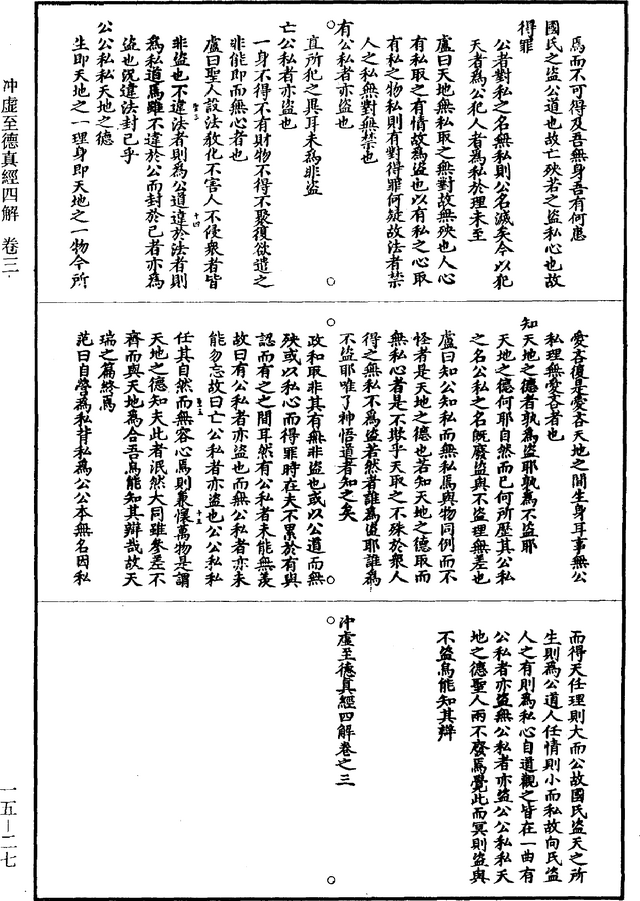 焉而不可得及吾無身吾有何患
國氏之盜公道也故亡殃若之盜私心也故
得罪
公者對私之名無私則公名滅矣今以犯
天者為公犯人者為私於理未至
盧曰天地無私取之無對故無殃也人心
有私取之有情故為盜也以有私之心取
有私之物私則有對得罪何疑故法者禁
人之私無對無禁也
有公私者亦盜也
直所犯之異耳未為非盜
亡公私者亦盜也
一身不得不有財物不得不聚復欲遣之
非能即而無心者也
盧曰聖人設法教化不害人不侵眾者皆
非盜也不違法者則為公道違於法者則
為私道焉雖不違於公而封於己者亦為
盜也況違法封己乎
公公私私天地之德
生即天地之一理身即天地之一物今所
愛吝復是愛吝天地之間生身耳事無公
私理無愛吝者也
知天地之德者孰為盜耶孰為不盜耶
天地之德何耶自然而已何所歷其公私
之名公私之名既廢盜與不盜理無差也
盧曰知公知私而無私焉與物同例而不
怪者是天地之德也若知天地之德取而
無私心者是不欺乎天取之不殊於眾人
得之無私不為盜若然者誰為盜耶誰為
不盜耶唯了神悟道者知之矣
政和取非其有無非盜也或以公道而無
殃或以私心而得罪時在夫不累於有與
認而有之之間耳然有公私者未能無羨
故曰有公私者亦盜也而無公私者亦未
能勿忘故曰亡公私者亦盜也公公私私
任其自然而無容心焉則兼懷萬物是謂
天地之德知夫此者泯然大同雖參差不
齊而與天地為合吾烏能知其辯哉故天
瑞之篇終焉
范曰自營為私背私為公公本無名因私
而得天任理則大而公故國氏盜天之所
生則為公道人任情則小而私故向氏盜
人之有則為私心自道觀之皆在一曲有
公私者亦盜無公私者亦盜公公私私天
地之德聖人兩不廢焉覺此而冥則盜與
不盜烏能知其辯
沖虛至德真經四解卷之三
冲虛至德真經四解 卷三
一五—二七